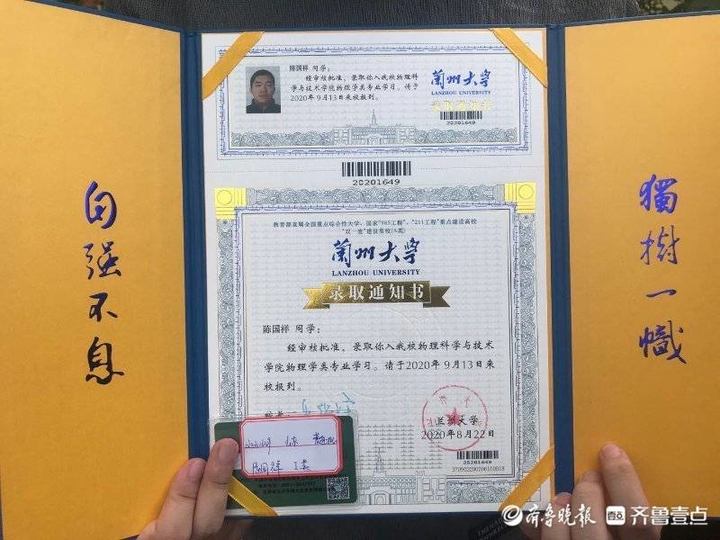 自强不息
獨樹一幟
陈国祥 同学:
经审核批准,录取你入我校物理科
学与技术学院物理学类专业学习。请于
2020年9月13日来校报到。
兰州大学
LANZHOU UNIVERSITY
录取通知书
20201649
20201649
教育部直属全国重点综合性大学、国家“985工程”、“211工程”重点建设高校
“双一流”建设高校(A类)
兰州大学
LANZHOU UNIVERSITY
录取通知书
陈国祥 同学:
经审核批准,录取你入我校物理科学与技术
学院物理学类专业学习。请于2020年9月13日来
校报到。
兰州大学
2020年8月22日
20201649
齐鲁晚报
齐鲁壹点